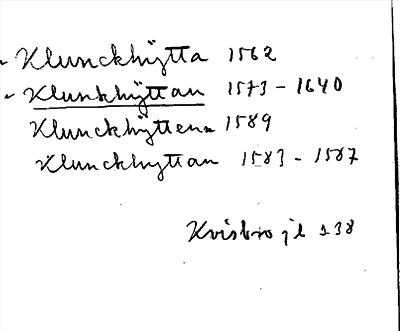 - Klunckhÿtta 1562
- Klunkhÿttan 1573 - 1640
Klunckhÿttena 1589
Klunckhyttan 1583 - 1587
Kvisbro jb s 38